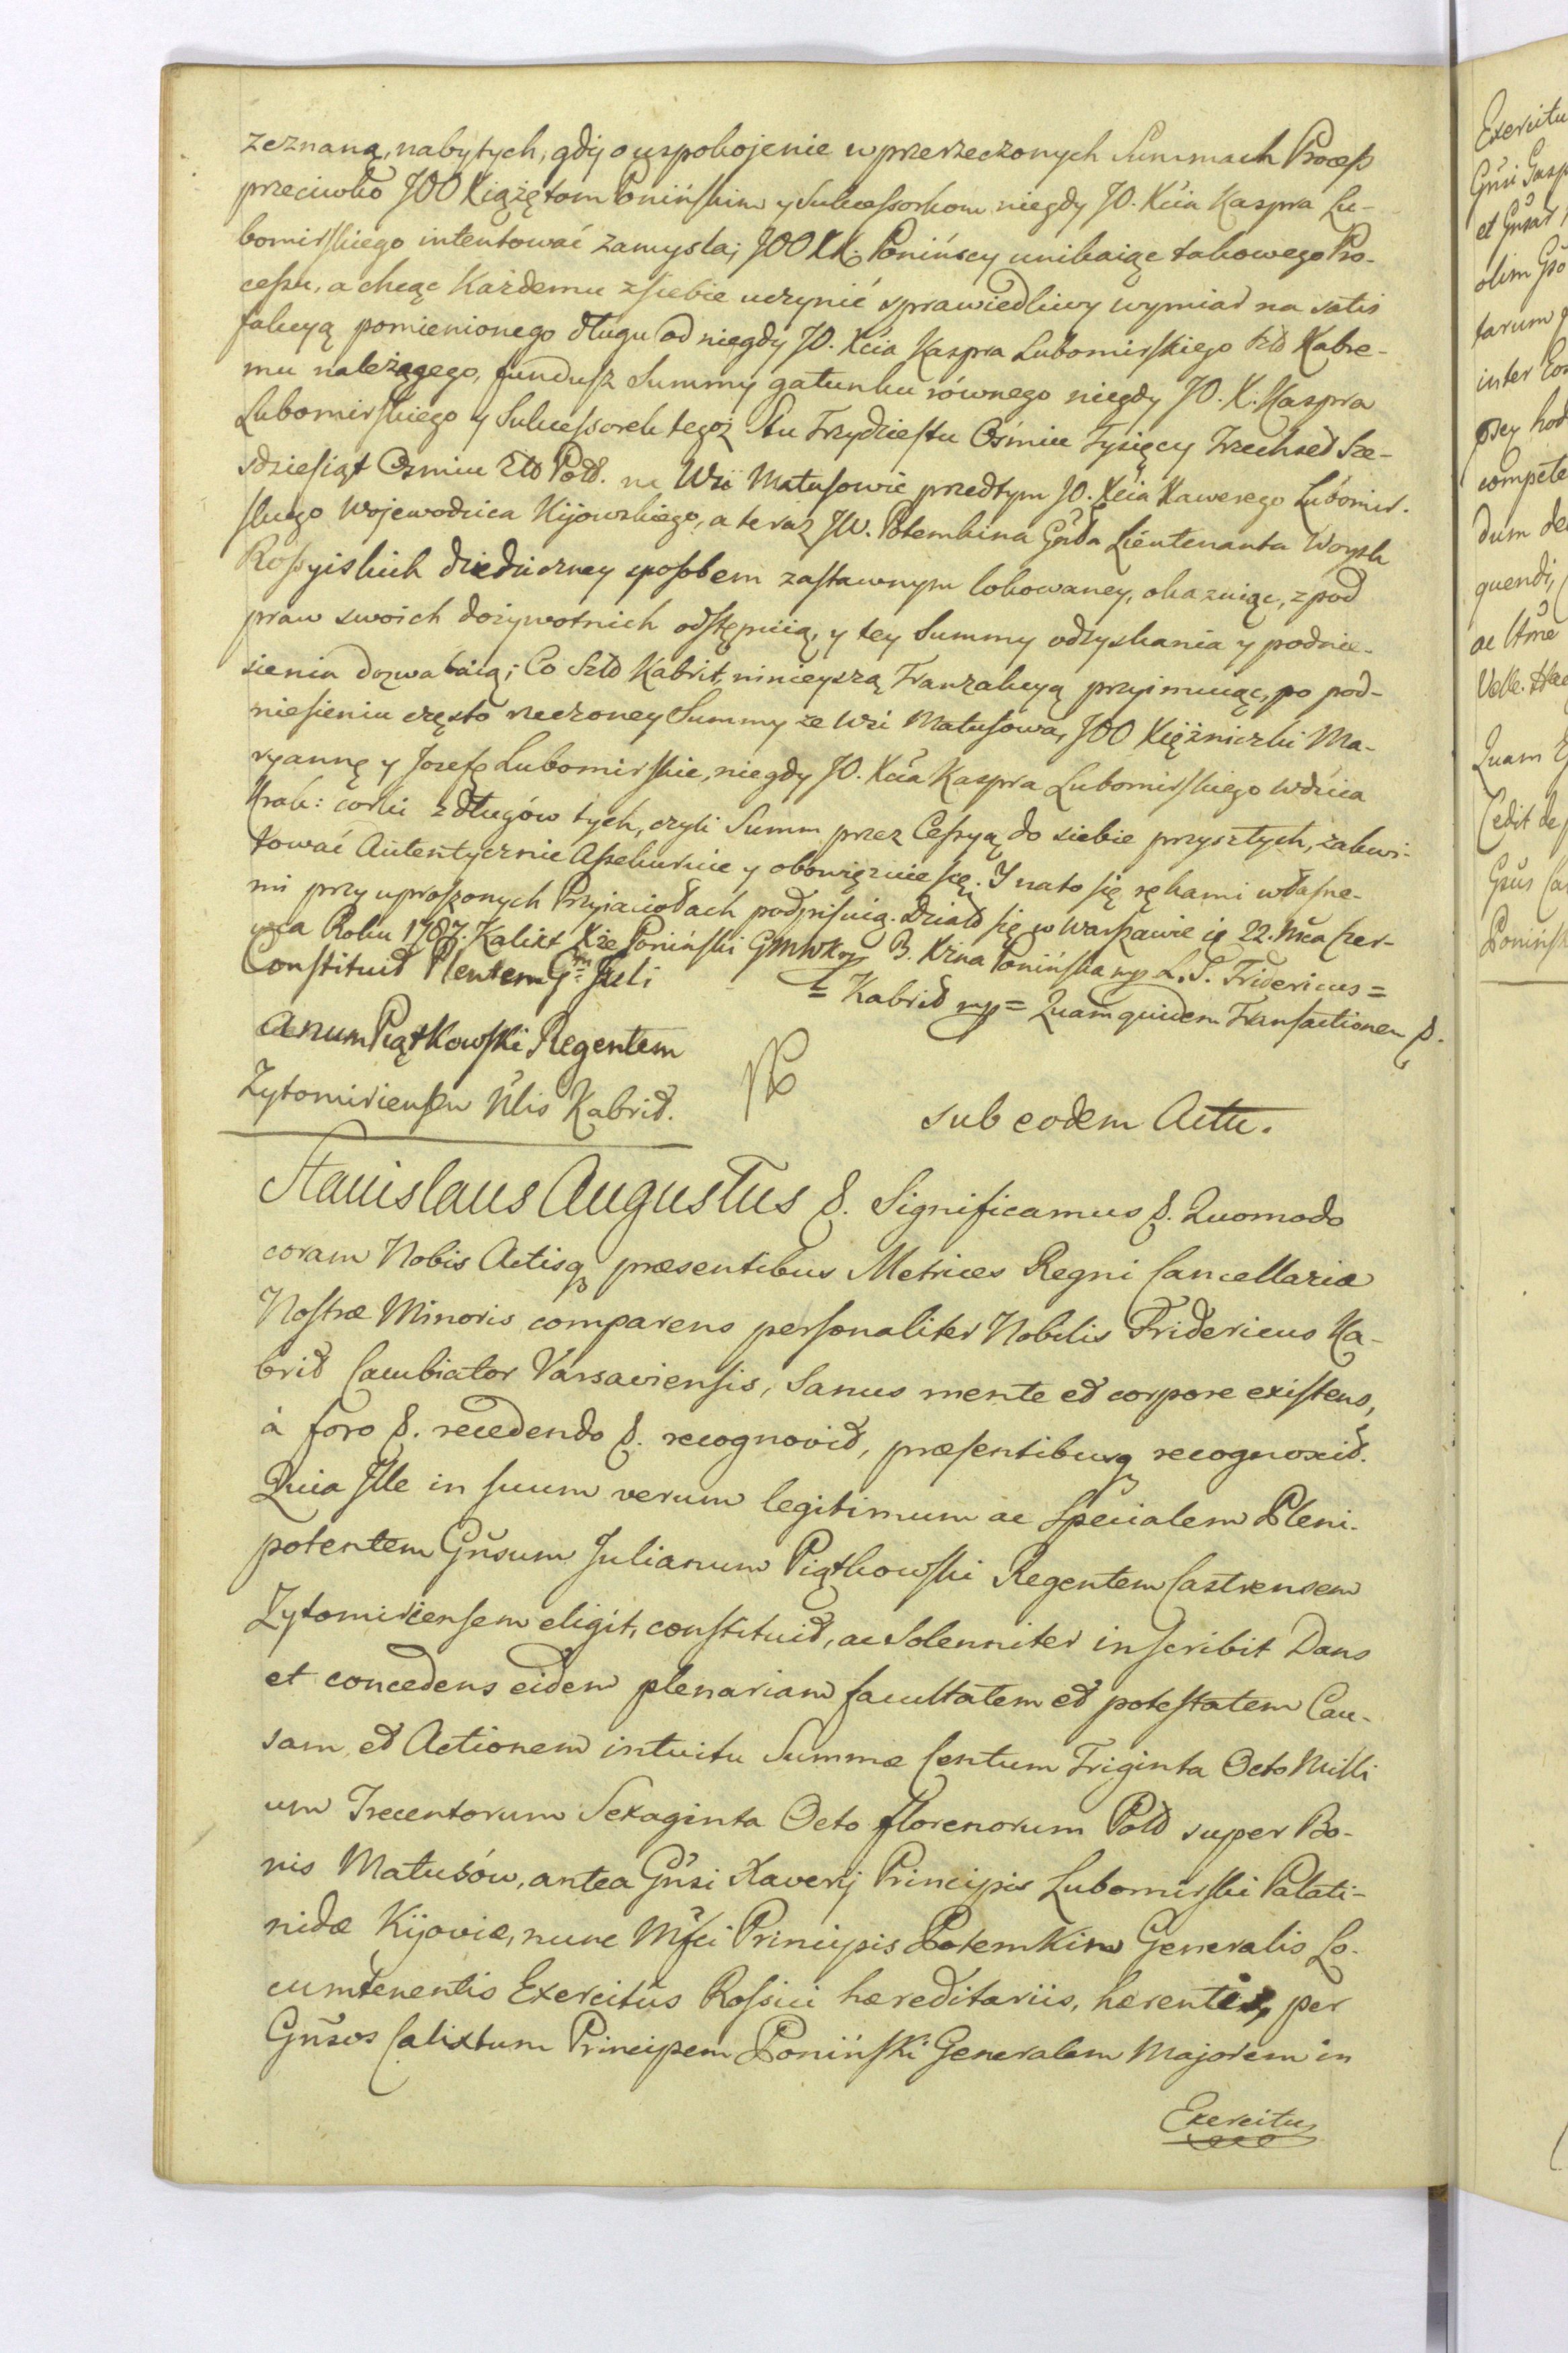 zeznaną, nabytych, gdy o uspokojenie w przerzeczonych Summach Process
przeciwko JOO Xiążętom Ponińskim y Sukcessorkom niegdy JO. Xcia Kaspra Lu-
bomirskiego intentować zamysla; JOO XX. Ponińscy unikaiąc takowego Pro-
cessu, a chcąc Każdemu z siebie uczynić sprawiedliwy wymiar na satis
fakcyą pomienionego długu od niegdy JO. Xcia Kaspra Lubomirskiego Kabre-
mu należącego, fundusz Summy gatunku równego niegdy JO. X. Kaspra
Lubomirskiego y Sukcessorek tegoż Stu Trzydziestu Ośmiu Tysięcy Trzechset Sze-
sdziesiąt Osmiu Zło Pold. na Wsi Matusowie przedtym JO. Xcia Xawerego Lubomir-
skiego Wojewodzica Kijowskiego, a teraz JW. Potemkina Gnła Lieutenanta Woysk
Rossyiskich dziedziczney sposobem zastawnym lokowaney, okazuiąc, z pod
praw swoich dożywotnich odstępuią, y tey Summy odzyskania y podnie-
sienia dozwalaią; Co Szld Kabrit, ninieyszą Tranzakcyą przyimuiąc, po pod-
niesieniu często rzeczoney Summy ze Wsi Matusowa, JOO Xiężniczki Ma-
ryannę y Jozefę Lubomirskie, niegdy JO. Xcia Kaspra Lubomirskiego Wdzica
Krak: corki z długów tych, czyli Summ przez Cessyą do siebie przyszłych, zakwi-
tować Autentycznie Assekuruie y obowięzuie się. Y na to się rękami własne-
mi przy uproszonych Przyiaciołach podpisuią. Dział się w Warszawie ię 22. Mca Czer-
wca Roku 1787. Kalixt Xże Poniński GMWK mp B. Xżna Ponińska mp L.S. Fridericus =
= Kabrid mp = Quam quidem Transactionem &.
Constituit Plentem G. Juli
anum Piątkowski Regentem
Zytomiriensem Nlis Kabrid.
sub eodem Actu.
Stanislaus Augustus &. Significamus &. Quomodo
coram Nobis Actisq præsentibus Metrices Regni Cancellariæ
Nostræ Minoris comparens personaliter Nobilis Fridericus Ka-
brid Cambiator Varsaviensis, sanus mente et corpore existens,
à foro &. recedendo &. recognovit, præsentibusq recognoscit.
Quia Ille in suum verum legitimum ac specialem Pleni-
potentem Gnsum Julianum Piątkowski Regentem Castrensem
Zytomiriensem eligit, constituit, ac solenniter inscribit Dans
et concedens eidem plenariam facultatem et potestatem Cau-
sam et Actionem intuitu Summæ Centum Triginta Octo Milli
um Trecentorum Sexaginta Octo florenorum Pold super Bo-
nis Matusów, antea Gnsi Xaverij Principis Lubomirski Palati-
nidæ Kijoviæ, nunc Mfci Principis Potemkin Generalis Lo-
cumtenentis Exercitûs Rossici hæreditariis, hærentis, per
Gnsos Calixtum Principem Poniński Generalem Majorem in
Exercitu